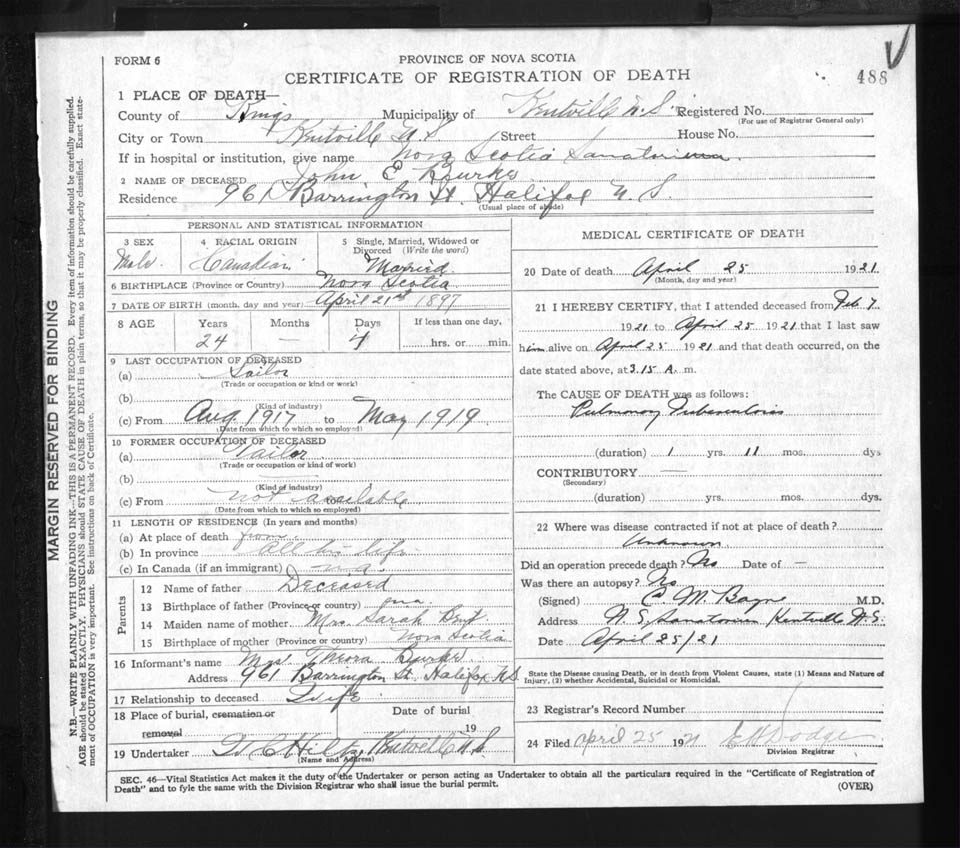 FORM 6
PROVINCE OF NOVA SCOTIA
CERTIFICATE OF REGISTRATION OF DEATH
488
1 PLACE OF DEATH—
County of Kings Municipality of Kentville N.S. Registered No.
(For use of Registrar General only)
City or Town Kentville N.S. Street House No.
If in hospital or institution, give name Nova Scotia Sanatorium.
2 NAME OF DECEASED John E Bourke
Residence 961 Barrington St. Halifax N.S.
(Usual place of abode)
PERSONAL AND STATISTICAL INFORMATION
3 SEX 4 RACIAL ORIGIN 5 Single, Married, Widowed or Divorced (Write the word)
Male Canadian Married
6 BIRTHPLACE (Province or Country) Nova Scotia
7 DATE OF BIRTH (month, day and year) April 21st 1897
8 AGE Years Months Days If less than one day,
24 — 4 hrs. or min.
9 LAST OCCUPATION OF DECEASED
(a) Sailor
(Trade or occupation or kind or work)
(b)
(Kind of industry)
(c) From Aug. 1917 to May 1919
(Date from which to which so employed)
10 FORMER OCCUPATION OF DECEASED
(a) Tailor
(Trade or occupation or kind of work)
(b) —
(Kind of industry)
(c) From not available
(Date from which to which so employed)
11 LENGTH OF RESIDENCE (In years and months)
(a) At place of death
(b) In province all his life
(c) In Canada (if an immigrant) n.a.
Parents
12 Name of father Deceased
13 Birthplace of father (Province or country)
14 Maiden name of mother Mrs. Sarah
15 Birthplace of mother (Province or country) Nova Scotia
16 Informant's name Mrs.
Address 961 Barrington St. Halifax N.S
17 Relationship to deceased Wife
18 Place of burial, cremation or removal Date of burial
19
19 Undertaker Kentville N.S.
(Name and Address)
MEDICAL CERTIFICATE OF DEATH
20 Date of death April 25 1921
(Month, day and year)
21 I HEREBY CERTIFY, that I attended deceased from Feb 7
1921 to April 25 1921 that I last saw
him alive on April 25 1921 and that death occurred, on the
date stated above, at 3.15 A. m.
The CAUSE OF DEATH was as follows:
Pulmonary Tuberculosis
(duration) 1 yrs. 11 mos. dys
CONTRIBUTORY —
(Secondary)
(duration) yrs. mos. dys.
22 Where was disease contracted if not at place of death?
Unknown
Did an operation precede death? No Date of —
Was there an autopsy? No
(Signed) M. Bayne M.D.
Address N.S. Sanatorium Kentville N.S.
Date April 25/21
State the Disease causing Death, or in death from Violent Causes, state (1) Means and Nature of
Injury, (2) whether Accidental, Suicidal or Homicidal.
23 Registrar's Record Number
24 Filed April 25 1921 Dodge
Division Registrar
SEC. 46—Vital Statistics Act makes it the duty of the Undertaker or person acting as Undertaker to obtain all the particulars required in the "Certificate of Registration of
Death" and to fyle the same with the Division Registrar who shall issue the burial permit.
(OVER)
MARGIN RESERVED FOR BINDING
N.B.—WRITE PLAINLY WITH UNFADING INK—THIS IS A PERMANENT RECORD. Every item of information should be carefully supplied.
AGE should be stated EXACTLY. PHYSICIANS should STATE CAUSE OF DEATH in plain terms, so that it may be properly classified. Exact state-
ment of OCCUPATION is very important. See instructions on back of Certificate.